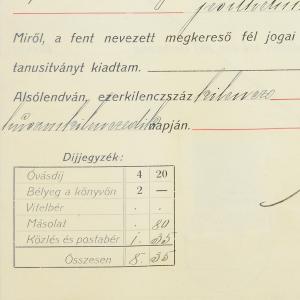 Miről, a fent nevezett megkereső fél jogai
tanusítványt kiadtam.
Alsólendván, ezerkilenczszáz
napján.
Díjjegyzék:
Óvásdíj 4 20
Bélyeg a könyvön 2 —
Vitelbér . .
Másolat . 80
Közlés és postabér 1. 35
Összesen 8. 35